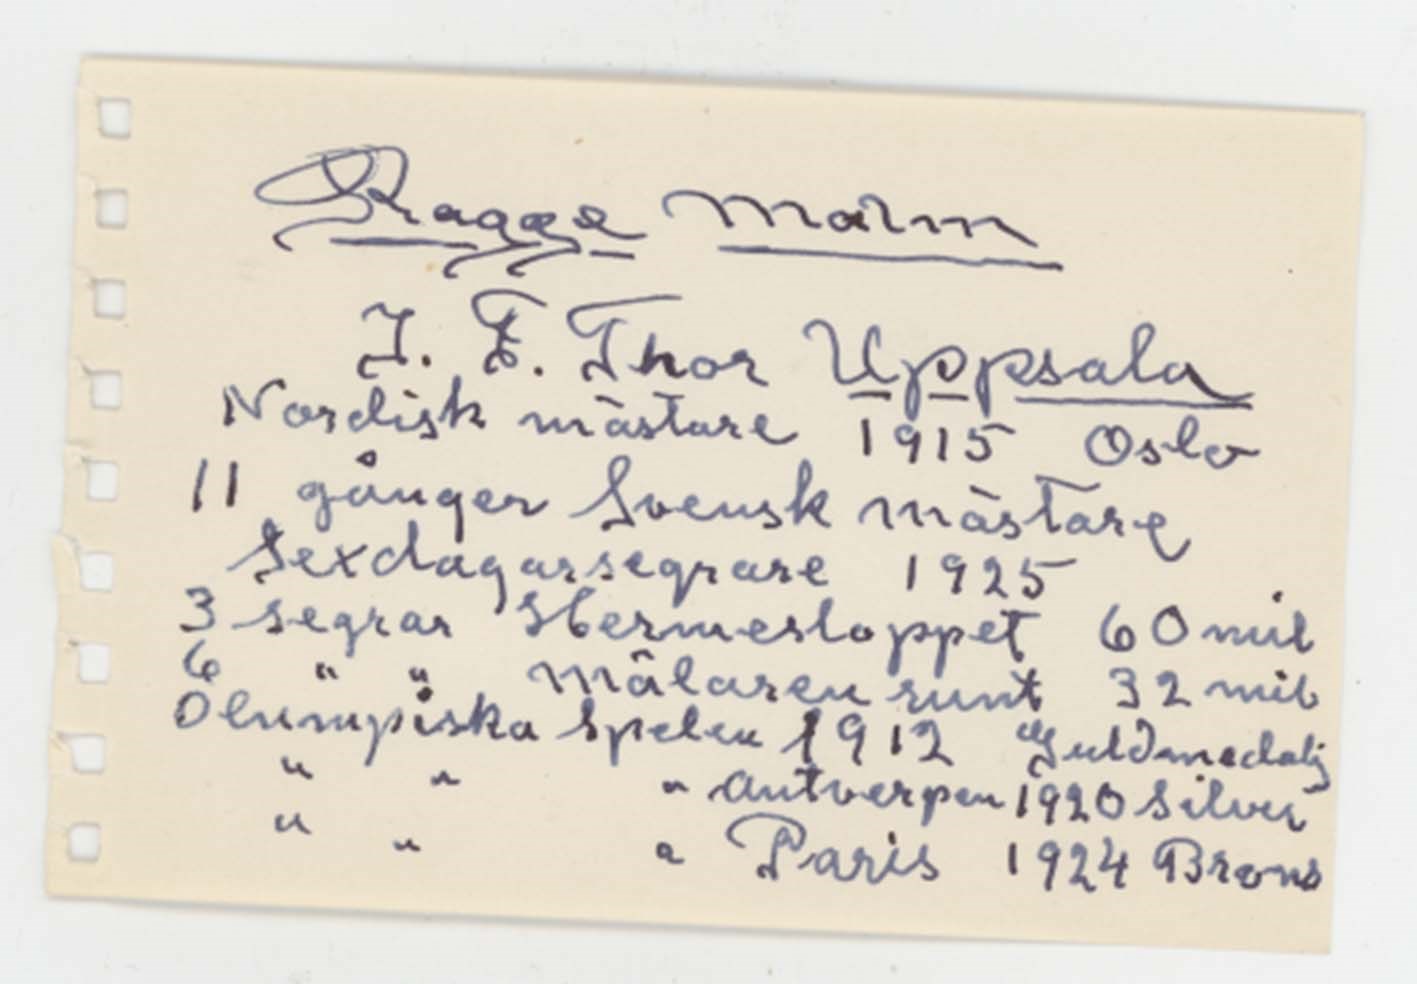 Ragge Malm
I. F. Thor Uppsala
Nordisk mästare 1915 Oslo
11 gånger Svensk mästare
Sexdagarssegrare 1925
3 segrar Hermesloppet 60 mil
6 " " Mälaren runt 32 mil
Olumpiska Spelen 1912 Guldmedalj
" " " Antverpen 1920 Silver
" " " Paris 1924 Brons